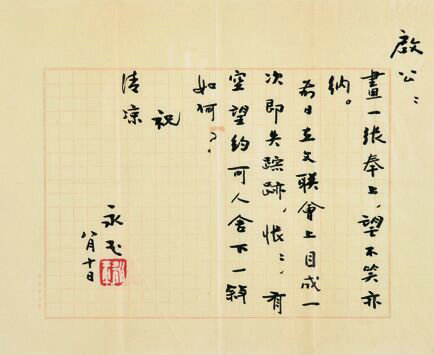 啟公：
畫一张奉上，望不笑亦
纳。
日在文联會上目成一
次即失踪跡，怅：，有
空望约可人舍下一敘
如何？
祝
清凉
永玉
八月十日